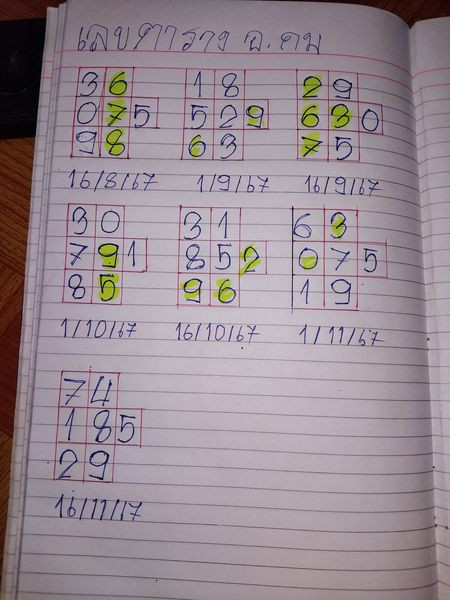 เลขตาราง อ.คม
36 18 29
075 529 630
98 63 75
16/8/67 1/9/67 16/9/67
30 31 63
791 852 075
85 96 19
1/10/67 16/10/67 1/11/67
74
185
29
16/11/17